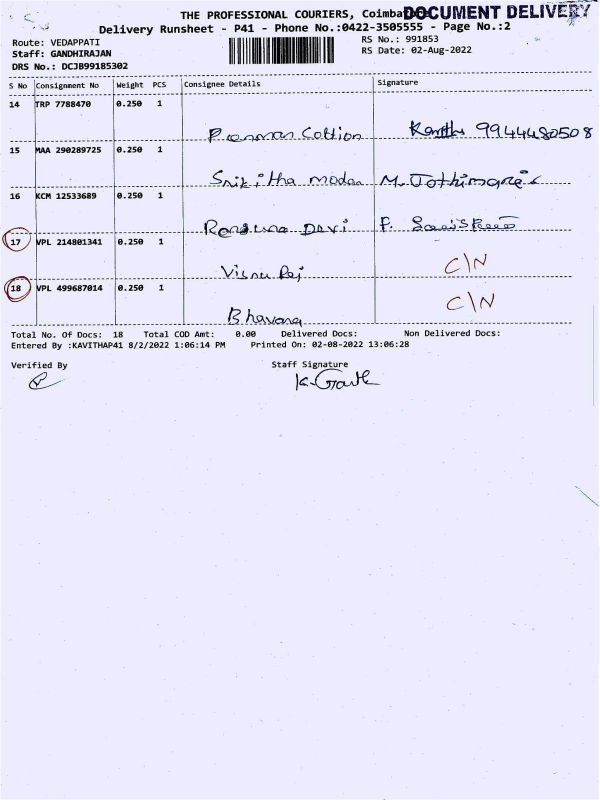 THE PROFESSIONAL COURIERS, Coimba
DOCUMENT DELIVERY
Delivery Runsheet - P41 - Phone No.:0422-3505555 - Page No.:2
Route: VEDAPPATI
RS No.: 991853
Staff: GANDHIRAJAN
RS Date: 02-Aug-2022
DRS No.: DCJB99185302
S No Consignment No Weight PCS Consignee Details Signature
14 TRP 7788470 0.250 1
Cottion 9944480508
15 MAA 290289725 0.250 1
Srikitha modan M. Jothimani
16 KCM 12533689 0.250 1
Devi P.
17 VPL 214801341 0.250 1
Visnu Raj C/N
18 VPL 499687014 0.250 1
Bhavana C/N
Total No. Of Docs: 18 Total COD Amt: 0.00 Delivered Docs: Non Delivered Docs:
Entered By :KAVITHAP41 8/2/2022 1:06:14 PM Printed On: 02-08-2022 13:06:28
Verified By Staff Signature